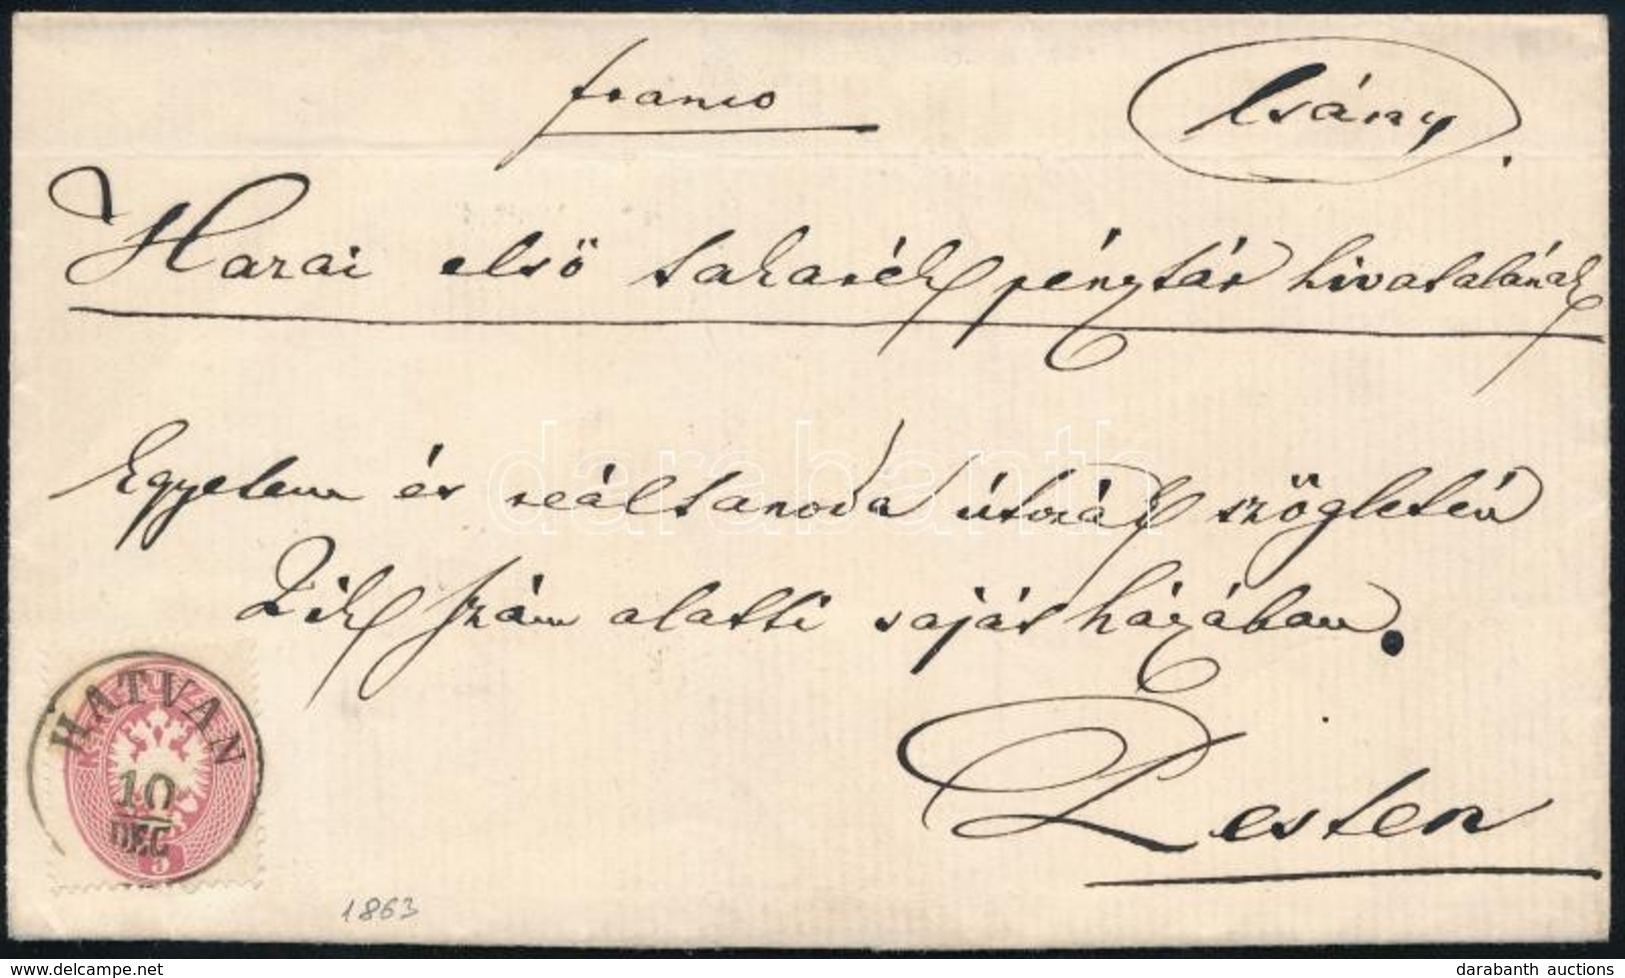 franco
Csány.
Hazai első takarék pénztár hivatalának
Egyetem és reáltanoda útczák szögletén
2ik szám alatti saját házában.
Pesten
HATVAN
10
DEC
5
1863
darabanth
delcampe.net
darabanth auctions